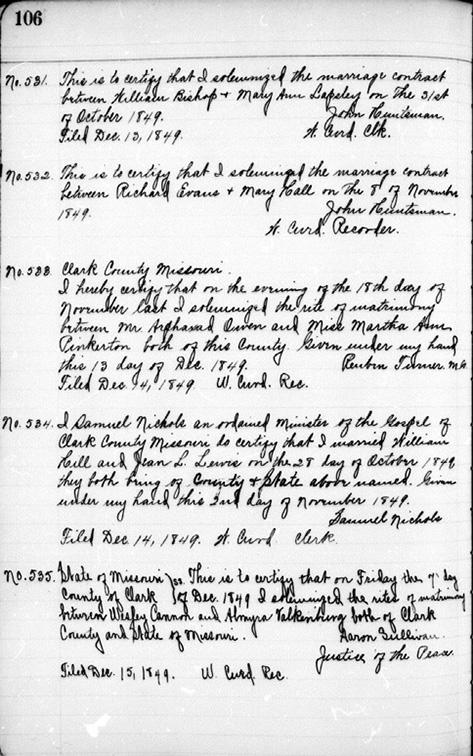 106
No. 531. This is to certify that I solemnized the marriage contract
between William Bishop + Mary Ann Lapsley on the 31st
of October 1849. John Huntsman.
Filed Dec. 13, 1849. W. Curd Clk.
No. 532. This is to certify that I solemnized the marriage contract
between Richard Evans + Mary Hall on the 8 of November
1849. John Huntsman.
W. Curd. Recorder.
No. 533. Clark County Missouri.
I hereby certify that on the evening of the 18th day of
November last I solemnized the rite of matrimony
between Mr Owen and Miss Martha Ann
Pinkerton both of this County. Given under my hand
this 13 day of Dec. 1849. Reubin Turner. M.G.
Filed Dec. 14, 1849 W. Curd. Rec.
No. 534. I Samuel Nichols an ordained Minister of the Gospel of
Clark County Missouri do certify that I married William
Hill and Jean L. Lewis on the 28 day of October 1849
they both being of County + State above named. Given
under my hand this 2nd day of November 1849.
Samuel Nichols
Filed Dec 14, 1849. W. Curd Clerk.
No. 535. State of Missouri } ss. This is to certify that on Friday the 7" day
County of Clark } of Dec. 1849 I solemnized the rites of matrimony
between Wesley Cannon and Almyra Valkenburg both of Clark
County and State of Missouri. Aaron Sullivan.
Justice of the Peace.
Filed Dec. 15, 1849. W. Curd Rec.